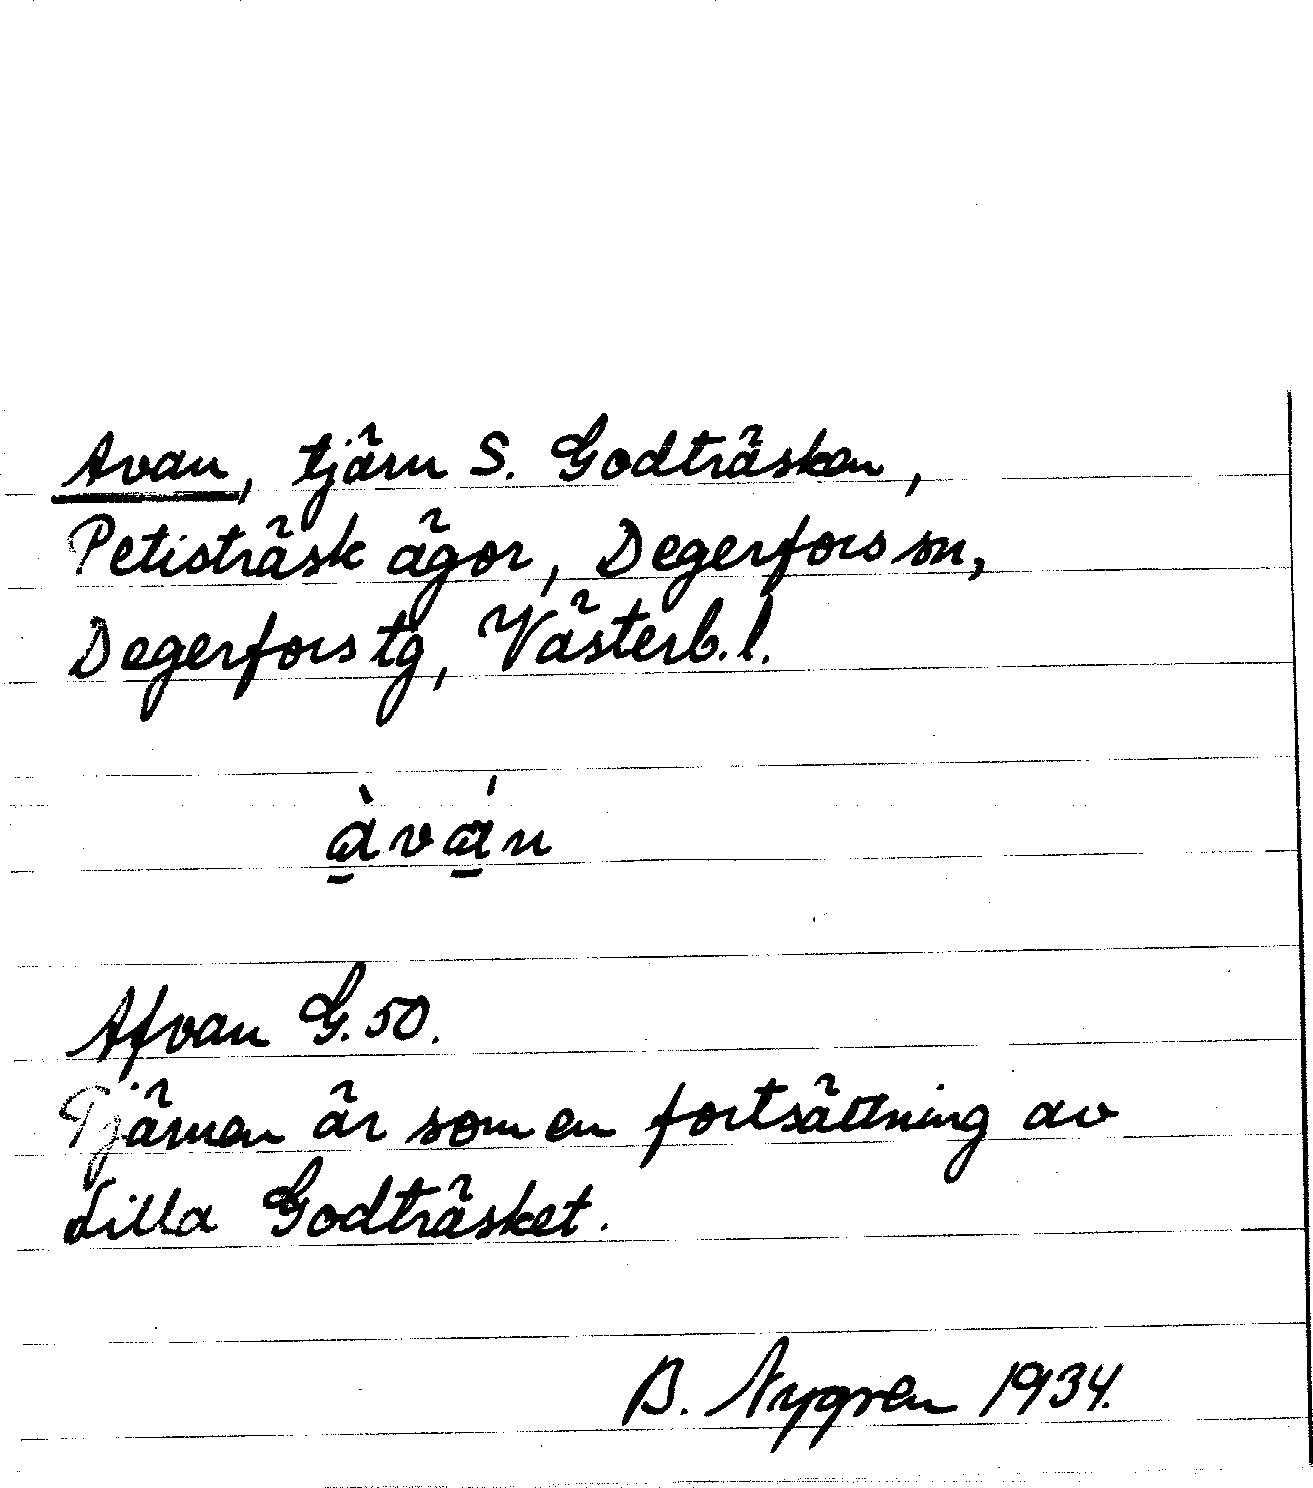 Avan, tjärn S. Godträsken,
Petisträsk ägor, Degerfors sn,
Degerfors tg, Västerb. l.
à̱vá̱n
Afvan G. 50.
Tjärnen är som en fortsättning av
Lilla Godträsket.
B. Nygren 1934.